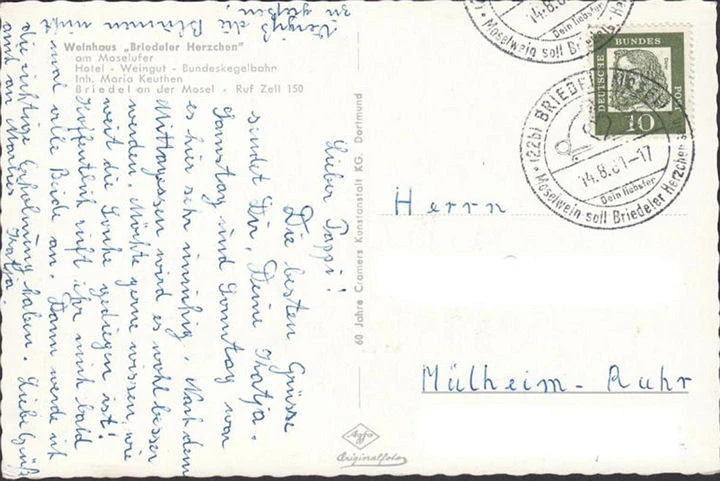 Weinhaus „Briedeler Herzchen"
am Moselufer
Hotel - Weingut - Bundeskegelbahn
Inh. Maria Keuthen
Briedel an der Mosel - Ruf Zell 150
Lieber Pappi!
Die besten Grüsse
sendet Dir, Deine Katja.
Samstag und Sonntag war
es hier sehr unruhig. Nach dem
Mittagessen wird es wohl besser
werden. Möchte gerne wissen, wie
weit die Sache gediegen ist!
Hoffentlich ruft ihr mich bald
mal alle Beide an. Dann werde ich
die richtige Erholung haben. Liebe Grüß
auch an Katja.
Vergiß die Blumen nicht
zu gießen!
60 Jahre Cramers Kunstanstalt KG, Dortmund
Agfa
Originalfoto
DEUTSCHE BUNDES POST
10
(22b) BRIEDEL
14.8.61-17
Dein liebster
Moselwein soll Briedeler Herzchen
14.8.6
Dein liebster
Moselwein soll Briedeler He
Herrn
Mülheim-Ruhr